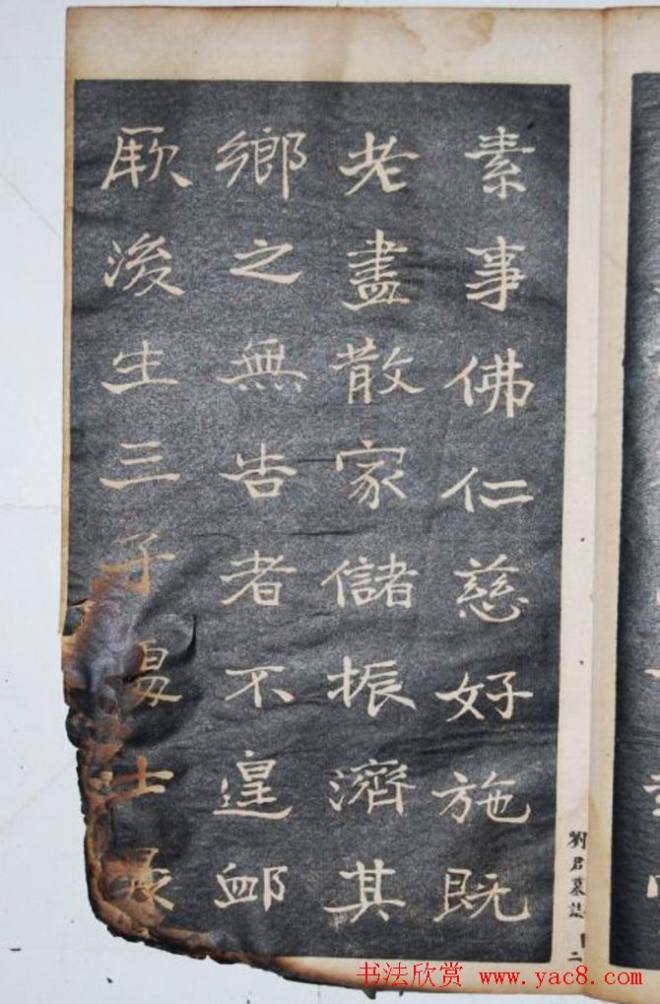 素事佛仁慈好施既
老盡散家儲振濟其
鄉之無告者不遑卹
厥後生三子夏士
劉君墓誌 十二
书法欣赏 www.yac8.com